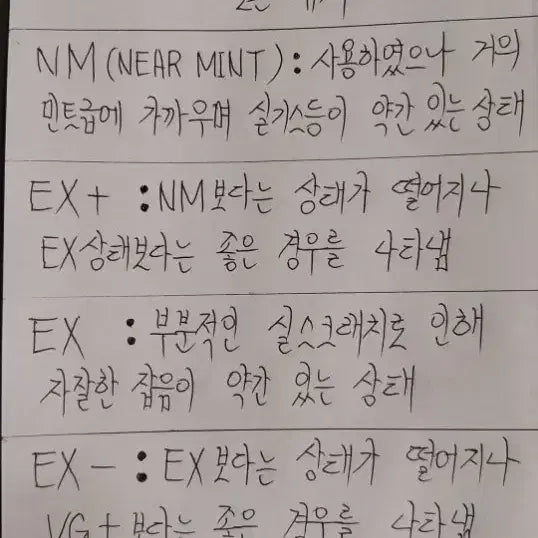 NM (NEAR MINT) : 사용하였으나 거의
민트급에 가까우며 실기스등이 약간 있는 상태
EX+ : NM보다는 상태가 떨어지나
EX상태보다는 좋은 경우를 나타냄
EX : 부분적인 실스크래치로 인해
자잘한 잡음이 약간 있는 상태
EX- : EX보다는 상태가 떨어지나
VG+보다는 좋은 경우를 나타냄